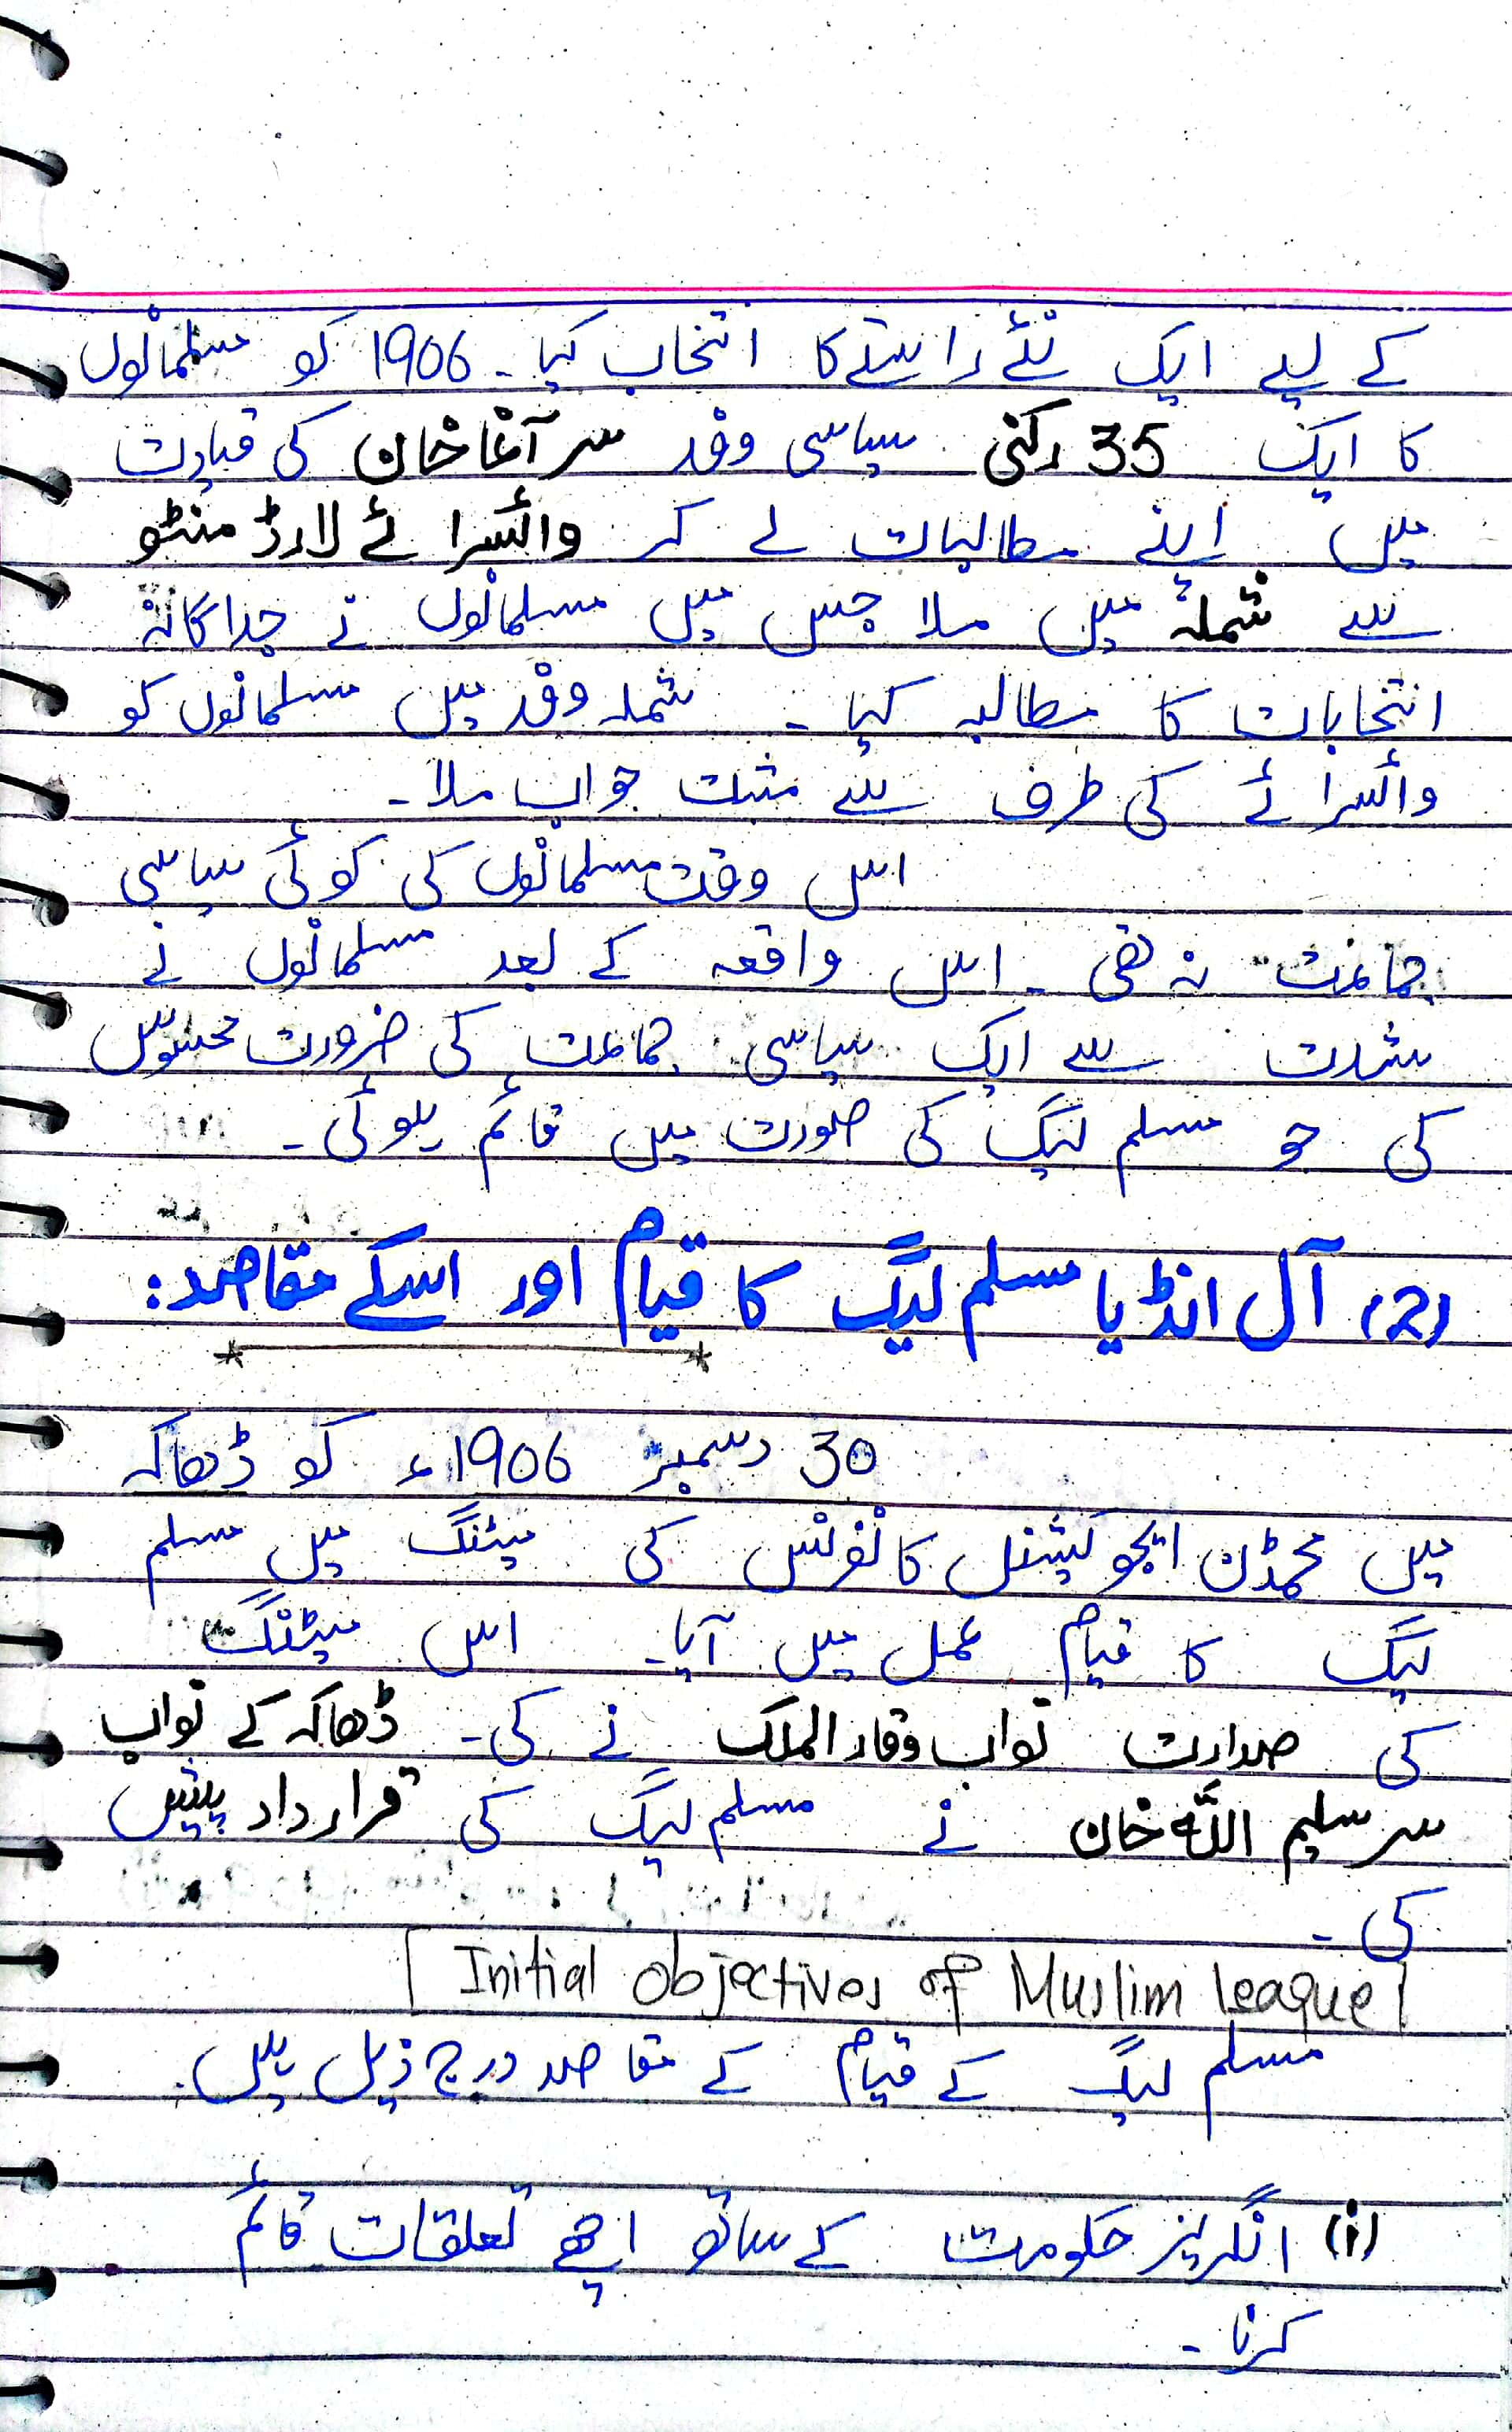 کے لیے ایک نئے راستے کا انتخاب کیا۔ 1906 کو مسلمانوں
کا ایک 35 رکنی سیاسی وفد سر آغا خان کی قیادت
میں اپنے مطالبات لے کر وائسرائے لارڈ منٹو
سے شملہ میں ملا جس میں مسلمانوں نے جداگانہ
انتخابات کا مطالبہ کیا۔ شملہ وفد میں مسلمانوں کو
وائسرائے کی طرف سے مثبت جواب ملا۔
اس وقت مسلمانوں کی کوئی سیاسی
جماعت نہ تھی۔ اس واقعہ کے بعد مسلمانوں نے
شدت سے ایک سیاسی جماعت کی ضرورت محسوس
کی جو مسلم لیگ کی صورت میں قائم ہوئی۔
(2) آل انڈیا مسلم لیگ کا قیام اور اسکے مقاصد:
30 دسمبر 1906ء کو ڈھاکہ
میں محمڈن ایجوکیشنل کانفرنس کی میٹنگ میں مسلم
لیگ کا قیام عمل میں آیا۔ اس میٹنگ
کی صدارت نواب وقار الملک نے کی۔ ڈھاکہ کے نواب
سر سلیم اللہ خان نے مسلم لیگ کی قرارداد پیش
کی۔
[Initial objectives of Muslim league]
مسلم لیگ کے قیام کے مقاصد درج ذیل ہیں۔
(i) انگریز حکومت کے ساتھ اچھے تعلقات قائم
کرنا۔